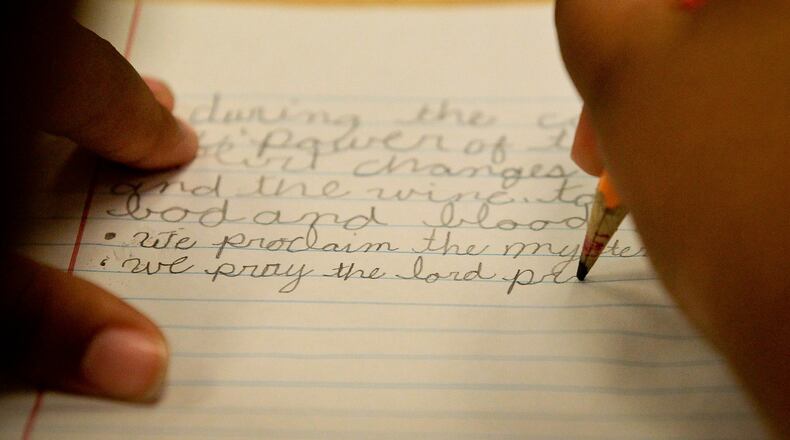 during the c
power of t
changes
and the wine to
bod and blood
• We proclaim the myste
• we pray the lord pr